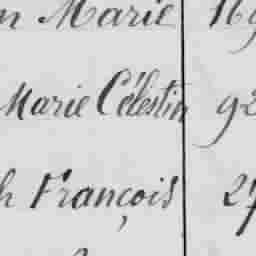 n Marie 169
Marie Célestin 92
h François 27